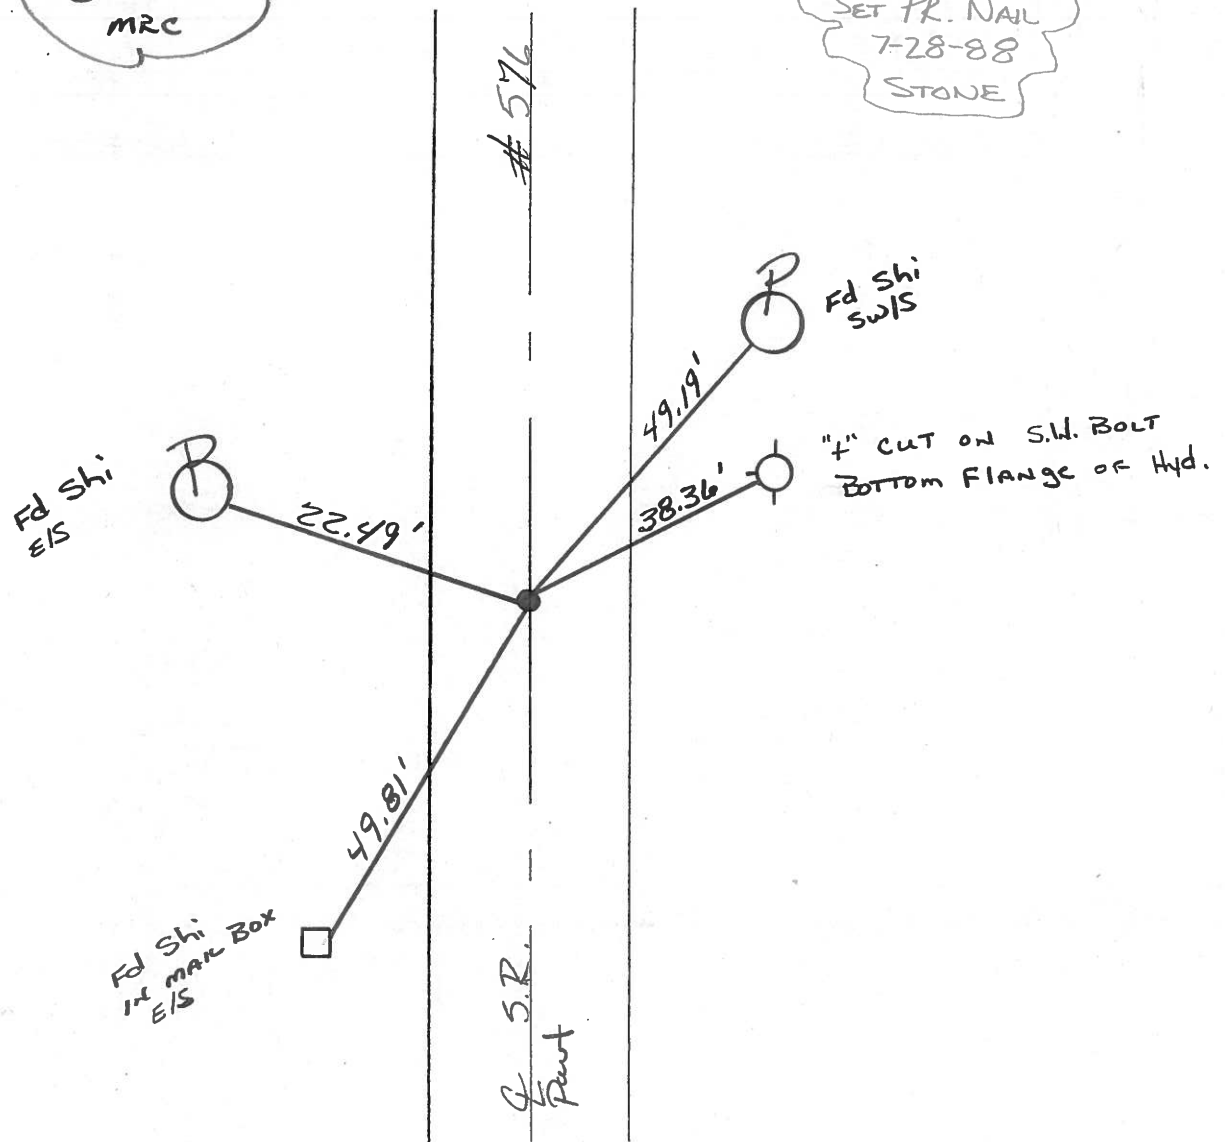 MRC
SET PK. NAIL
7-28-88
STONE
# 576
P
Fd Shi
SW/S
49.19'
"+" CUT ON S.W. BOLT
BOTTOM FLANGE OF Hyd.
38.36'
P
Fd Shi
E/S
22.49'
49.81'
Fd Shi
IN MAIL BOX
E/S
℄ S.R.
Pavt